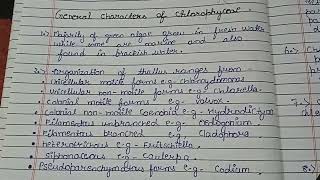 General Characters of Chlorophyceae
i) Majority of green algae grow in fresh water
while some are marine and also
found in brackish water.
ii) Organization of thallus ranges from
• Unicellular motile forms e.g. Chlamydomonas
• Unicellular non-motile forms e.g. Chlorella.
• Colonial motile forms e.g. Volvox.
• Colonial non-motile Coenobia e.g. Hydrodictyon
• Filamentous unbranched e.g. Oedogonium
• Filamentous branched e.g. Cladophora
• heterotrichous e.g. Fritschiella.
• Siphonaceous e.g. Caulerpa.
• Pseudoparenchymatous forms e.g. Codium.